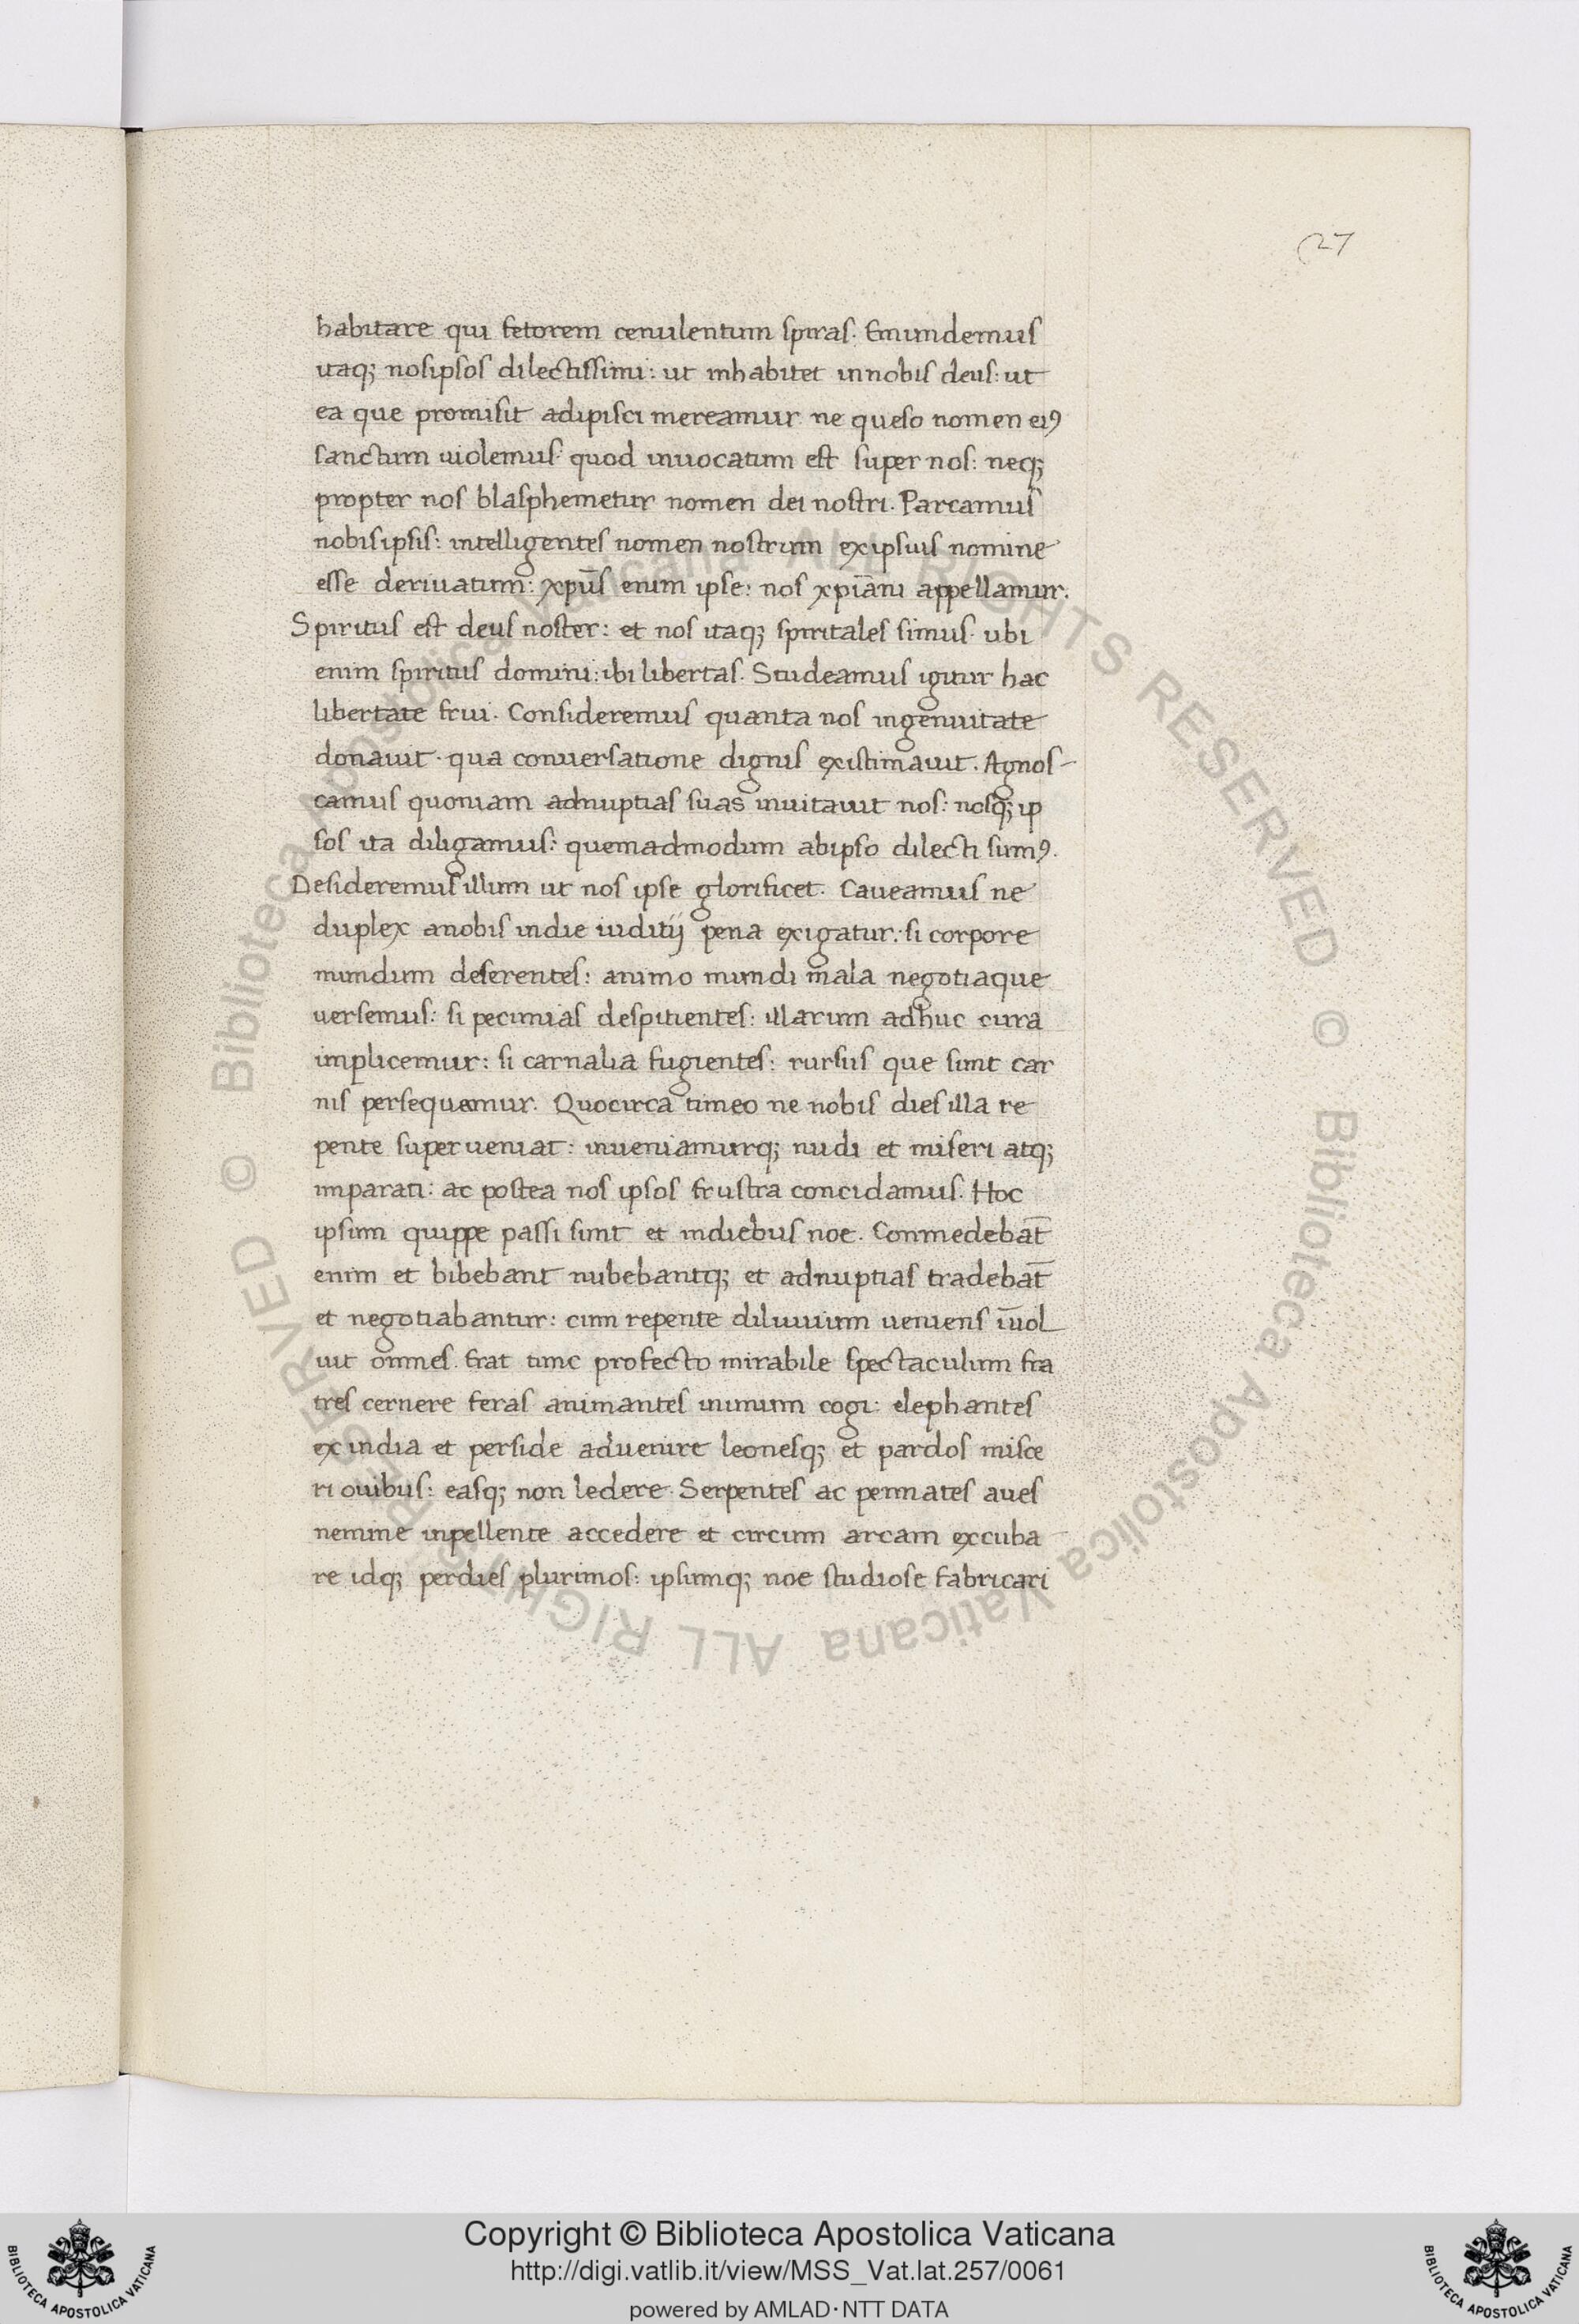 27
habitare qui fetorem cenulentum spiras. Emundemus
itaq; nosipsos dilectissimi: ut inhabitet innobis deus: ut
ea que promisit adipisci mereamur ne queso nomen eiꝰ
sanctum uiolemus: quod inuocatum est super nos: neq;
propter nos blasphemetur nomen dei nostri. Parcamus
nobisipsis: intelligentes nomen nostrum exipsius nomine
esse deriuatum: xpūs enim ipse: nos xpīani appellamur.
Spiritus est deus noster: et nos itaq; spiritales simus. ubi
enim spiritus domini: ibi libertas. Studeamus igitur hac
libertate frui. Consideremus quanta nos ingenuitate
donauit. qua conuersatione dignis existimauit. Agnos-
camus quoniam adnuptias suas inuitauit nos: nosq; ip
sos ita diligamus: quemadmodum abipso dilecti sumꝰ.
Desideremus illum ut nos ipse glorificet. Caueamus ne
duplex anobis indie iuditij pena exigatur: si corpore
mundum deserentes: animo mundi mala negotiaque
uersemus: si pecunias despitientes: illarum adhuc cura
implicemur: si carnalia fugientes: rursus que sunt car
nis persequamur. Quocirca timeo ne nobis dies illa re
pente superueniat: inueniamurq; nudi et miseri atq;
imparati: ac postea nos ipsos frustra concidamus. Hoc
ipsum quippe passi sunt et indiebus noe. Conmedebāt
enim et bibebant nubebantq; et adnuptias tradebāt
et negotiabantur: cum repente diluuium ueniens īuol
uit omnes. Erat tunc profecto mirabile spectaculum fra
tres cernere feras animantes inunum cogi: elephantes
ex india et perside aduenire leonesq; et pardos misce
ri ouibus: easq; non ledere. Serpentes ac pennates aues
nemine inpellente accedere et circum arcam excuba
re idq; perdies plurimos: ipsumq; noe studiose fabricari
© Biblioteca Apostolica Vaticana ALL RIGHTS RESERVED © Biblioteca Apostolica Vaticana ALL RIGHTS RESERVED
Copyright © Biblioteca Apostolica Vaticana
http://digi.vatlib.it/view/MSS_Vat.lat.257/0061
powered by AMLAD·NTT DATA
BIBLIOTECA APOSTOLICA VATICANA
BIBLIOTECA APOSTOLICA VATICANA